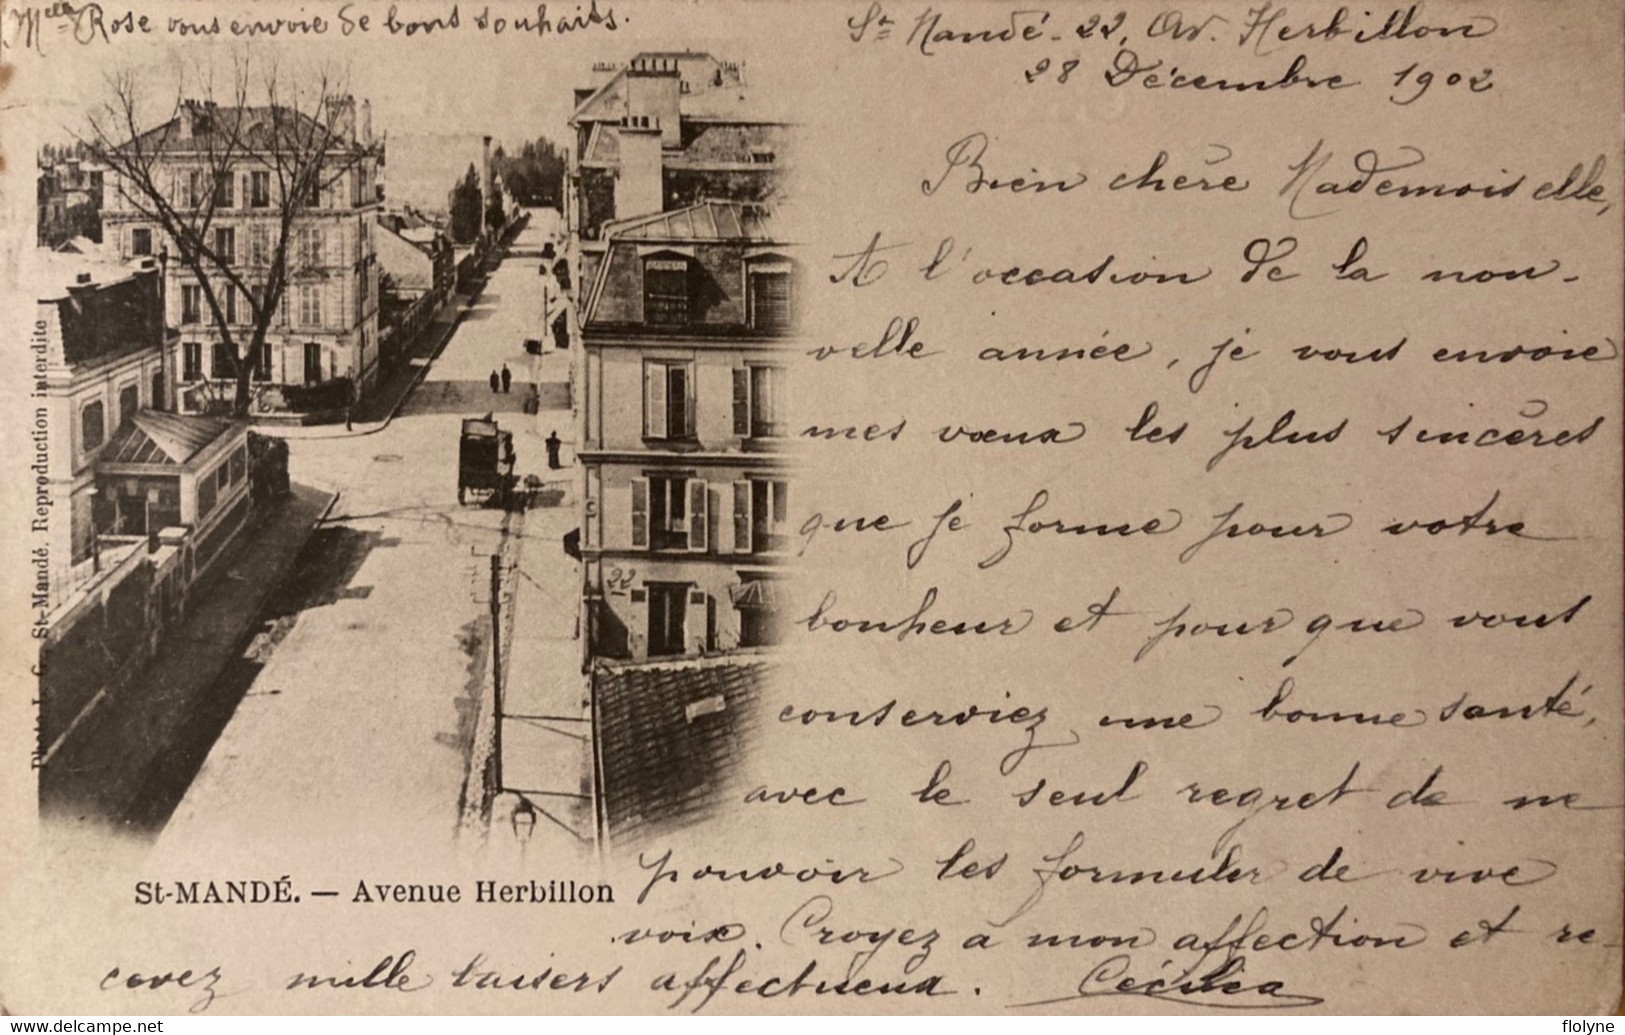 Melle Rose vous envoie de bons souhaits.
St Mandé - 22, Av. Herbillon
28 Décembre 1902
Bien chère Mademoiselle,
A l'occasion de la nou-
velle année, je vous envoie
mes vœux les plus sincères
que je forme pour votre
bonheur et pour que vous
conserviez une bonne santé,
avec le seul regret de ne
pouvoir les formuler de vive
voix. Croyez à mon affection et re-
cevez mille baisers affectueux. Cécilia
22
Photo L. G. St-Mandé. Reproduction interdite
St-MANDÉ. — Avenue Herbillon
delcampe.net
flolyne